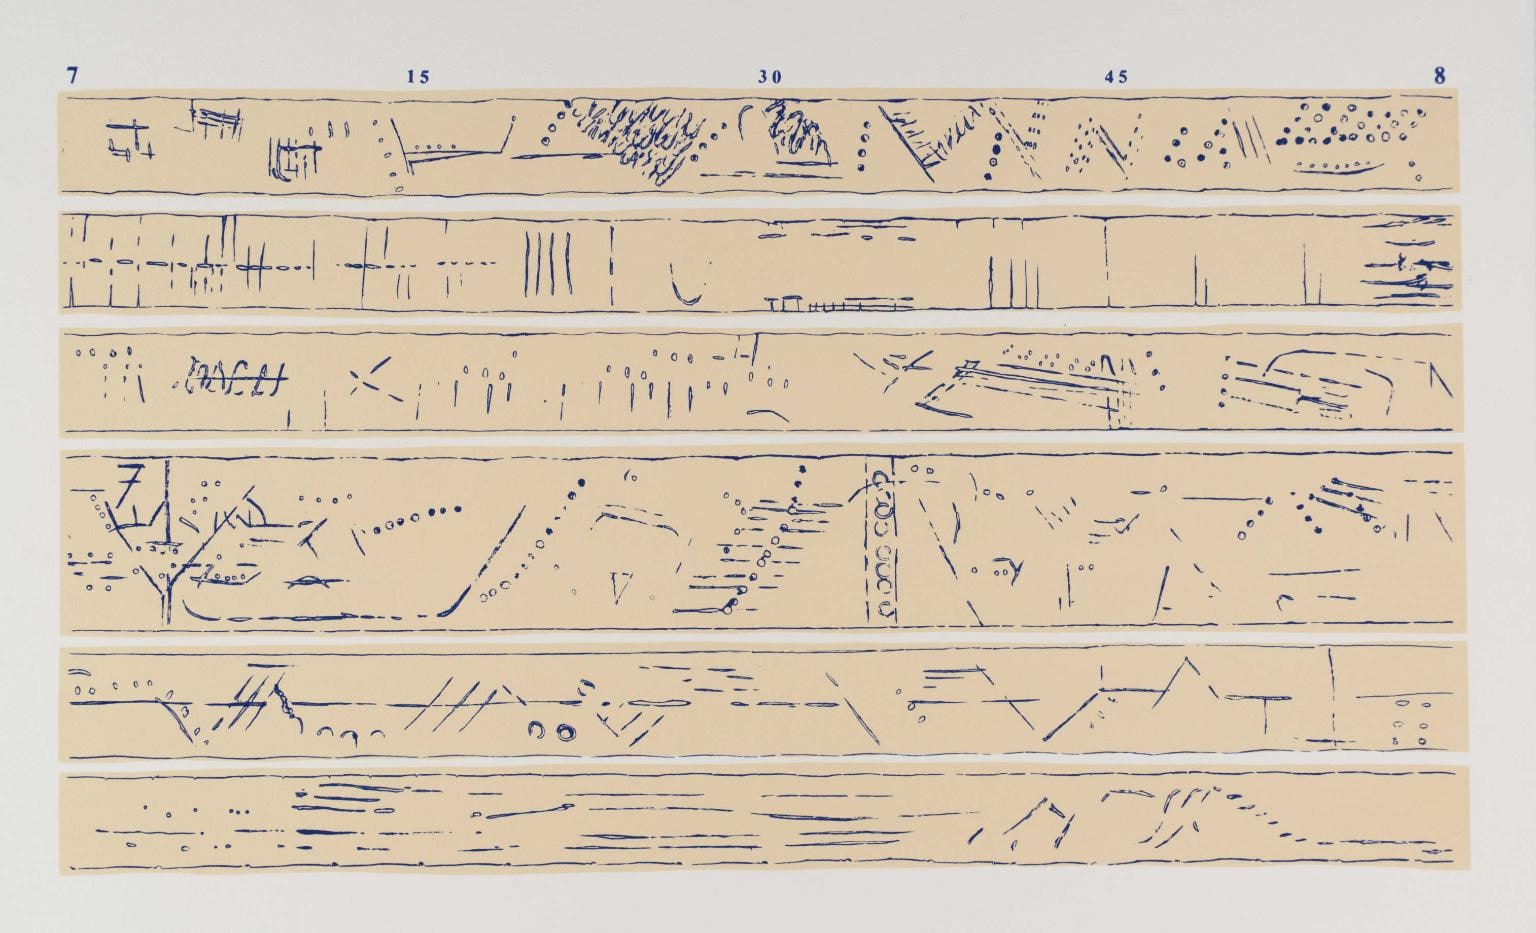 7 15 30 45 8
7